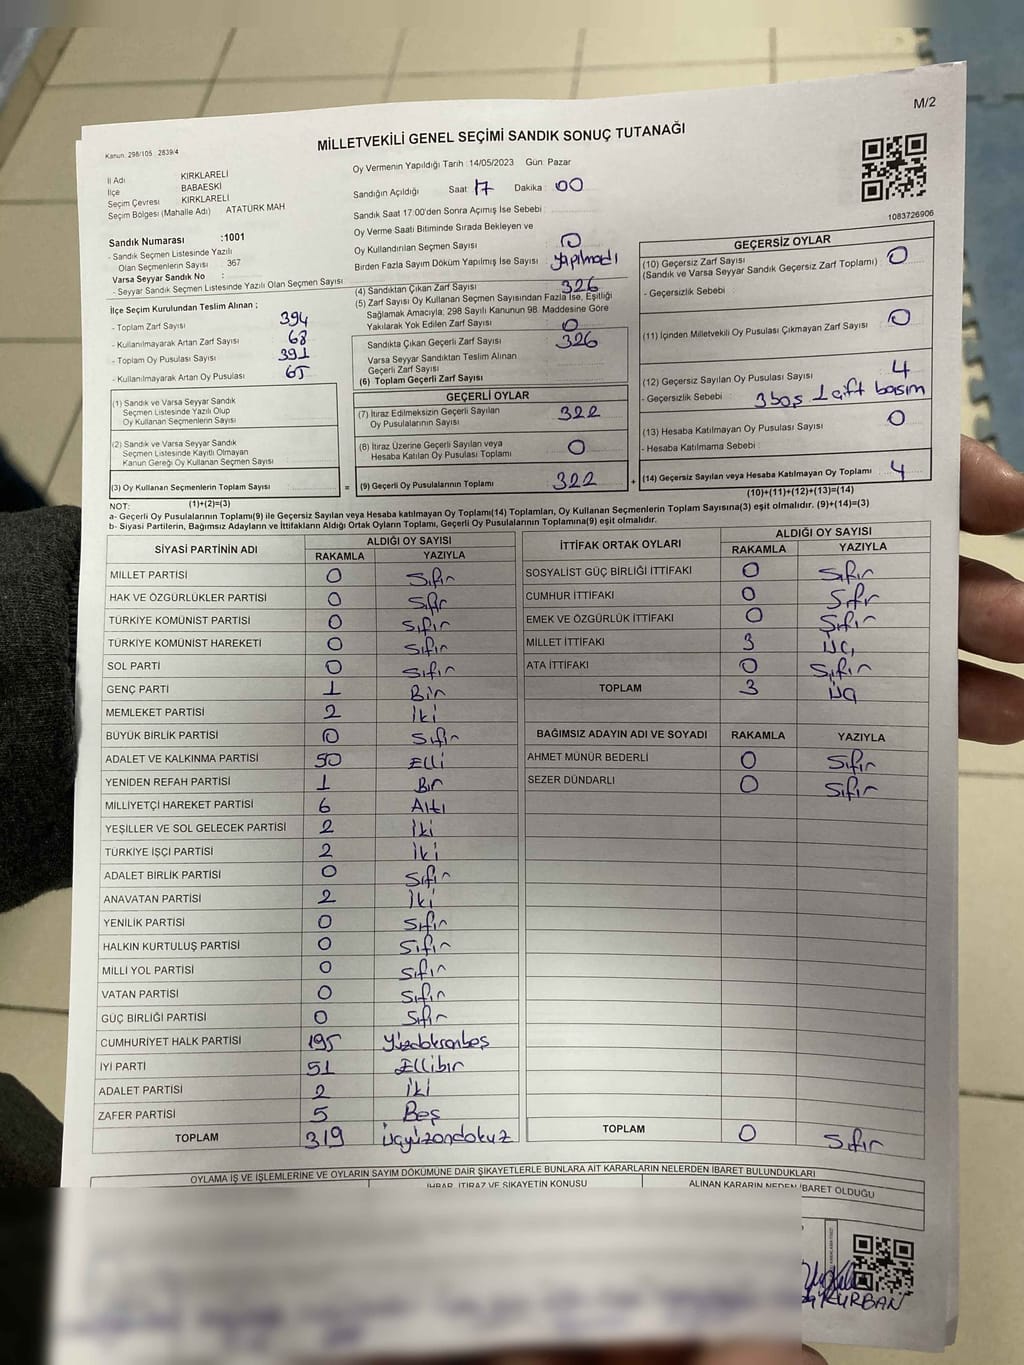 M/2
Kanun. 298/105 2839/4
MİLLETVEKİLİ GENEL SEÇİMİ SANDIK SONUÇ TUTANAĞI
İl Adı KIRKLARELİ
İlçe BABAESKİ
Seçim Çevresi KIRKLARELİ
Seçim Bölgesi (Mahalle Adı) ATATÜRK MAH
Sandık Numarası :1001
- Sandık Seçmen Listesinde Yazılı
Olan Seçmenlerin Sayısı 367
Varsa Seyyar Sandık No :
- Seyyar Sandık Seçmen Listesinde Yazılı Olan Seçmen Sayısı
Oy Vermenin Yapıldığı Tarih :14/05/2023 Gün: Pazar
Sandığın Açıldığı Saat: 17 Dakika : 00
Sandık Saat 17:00'den Sonra Açımış İse Sebebi :
Oy Verme Saati Bitiminde Sırada Bekleyen ve
Oy Kullandırılan Seçmen Sayısı : 0
Birden Fazla Sayım Döküm Yapılmış İse Sayısı : Yapılmadı
1083726906
İlçe Seçim Kurulundan Teslim Alınan ;
- Toplam Zarf Sayısı 394
- Kullanılmayarak Artan Zarf Sayısı 68
- Toplam Oy Pusulası Sayısı 391
- Kullanılmayarak Artan Oy Pusulası 65
(1) Sandık ve Varsa Seyyar Sandık
Seçmen Listesinde Yazılı Olup
Oy Kullanan Seçmenlerin Sayısı
(2) Sandık ve Varsa Seyyar Sandık
Seçmen Listesinde Kayıtlı Olmayan
Kanun Gereği Oy Kullanan Seçmen Sayısı
(3) Oy Kullanan Seçmenlerin Toplam Sayısı =
(1)+(2)=(3)
(4) Sandıktan Çıkan Zarf Sayısı 326
(5) Zarf Sayısı Oy Kullanan Seçmen Sayısından Fazla İse, Eşitliği
Sağlamak Amacıyla; 298 Sayılı Kanunun 98. Maddesine Göre
Yakılarak Yok Edilen Zarf Sayısı 0
Sandıkta Çıkan Geçerli Zarf Sayısı 326
Varsa Seyyar Sandıktan Teslim Alınan
Geçerli Zarf Sayısı
(6) Toplam Geçerli Zarf Sayısı
GEÇERLİ OYLAR
(7) İtiraz Edilmeksizin Geçerli Sayılan
Oy Pusulalarının Sayısı 322
(8) İtiraz Üzerine Geçerli Sayılan veya
Hesaba Katılan Oy Pusulası Toplamı 0
(9) Geçerli Oy Pusulalarının Toplamı 322 +
GEÇERSİZ OYLAR
(10) Geçersiz Zarf Sayısı 0
(Sandık ve Varsa Seyyar Sandık Geçersiz Zarf Toplamı)
- Geçersizlik Sebebi :
(11) İçinden Milletvekili Oy Pusulası Çıkmayan Zarf Sayısı 0
(12) Geçersiz Sayılan Oy Pusulası Sayısı 4
- Geçersizlik Sebebi : 3 boş 1 çift basım
(13) Hesaba Katılmayan Oy Pusulası Sayısı 0
- Hesaba Katılmama Sebebi :
(14) Geçersiz Sayılan veya Hesaba Katılmayan Oy Toplamı 4
(10)+(11)+(12)+(13)=(14)
NOT:
a- Geçerli Oy Pusulalarının Toplamı(9) ile Geçersiz Sayılan veya Hesaba katılmayan Oy Toplamı(14) Toplamları, Oy Kullanan Seçmenlerin Toplam Sayısına(3) eşit olmalıdır. (9)+(14)=(3)
b- Siyasi Partilerin, Bağımsız Adayların ve İttifakların Aldığı Ortak Oyların Toplamı, Geçerli Oy Pusulalarının Toplamına(9) eşit olmalıdır.
SİYASİ PARTİNİN ADI ALDIĞI OY SAYISI
RAKAMLA YAZIYLA
MİLLET PARTİSİ 0 Sıfır
HAK VE ÖZGÜRLÜKLER PARTİSİ 0 Sıfır
TÜRKİYE KOMÜNİST PARTİSİ 0 Sıfır
TÜRKİYE KOMÜNİST HAREKETİ 0 Sıfır
SOL PARTİ 0 Sıfır
GENÇ PARTİ 1 Bir
MEMLEKET PARTİSİ 2 İki
BÜYÜK BİRLİK PARTİSİ 0 Sıfır
ADALET VE KALKINMA PARTİSİ 50 Elli
YENİDEN REFAH PARTİSİ 1 Bir
MİLLİYETÇİ HAREKET PARTİSİ 6 Altı
YEŞİLLER VE SOL GELECEK PARTİSİ 2 İki
TÜRKİYE İŞÇİ PARTİSİ 2 İki
ADALET BİRLİK PARTİSİ 0 Sıfır
ANAVATAN PARTİSİ 2 İki
YENİLİK PARTİSİ 0 Sıfır
HALKIN KURTULUŞ PARTİSİ 0 Sıfır
MİLLİ YOL PARTİSİ 0 Sıfır
VATAN PARTİSİ 0 Sıfır
GÜÇ BİRLİĞİ PARTİSİ 0 Sıfır
CUMHURİYET HALK PARTİSİ 195 Yüzdoksanbeş
İYİ PARTİ 51 Ellibir
ADALET PARTİSİ 2 İki
ZAFER PARTİSİ 5 Beş
TOPLAM 319 Üçyüzondokuz
İTTİFAK ORTAK OYLARI ALDIĞI OY SAYISI
RAKAMLA YAZIYLA
SOSYALİST GÜÇ BİRLİĞİ İTTİFAKI 0 Sıfır
CUMHUR İTTİFAKI 0 Sıfır
EMEK VE ÖZGÜRLÜK İTTİFAKI 0 Sıfır
MİLLET İTTİFAKI 3 Üç
ATA İTTİFAKI 0 Sıfır
TOPLAM 3 Üç
BAĞIMSIZ ADAYIN ADI VE SOYADI RAKAMLA YAZIYLA
AHMET MÜNÜR BEDERLİ 0 Sıfır
SEZER DÜNDARLI 0 Sıfır
TOPLAM 0 Sıfır
OYLAMA İŞ VE İŞLEMLERİNE VE OYLARIN SAYIM DÖKÜMÜNE DAİR ŞİKAYETLERLE BUNLARA AİT KARARLARIN NELERDEN İBARET BULUNDUKLARI
İHBAR, İTİRAZ VE ŞİKAYETİN KONUSU ALINAN KARARIN NEDEN İBARET OLDUĞU
KURBAN